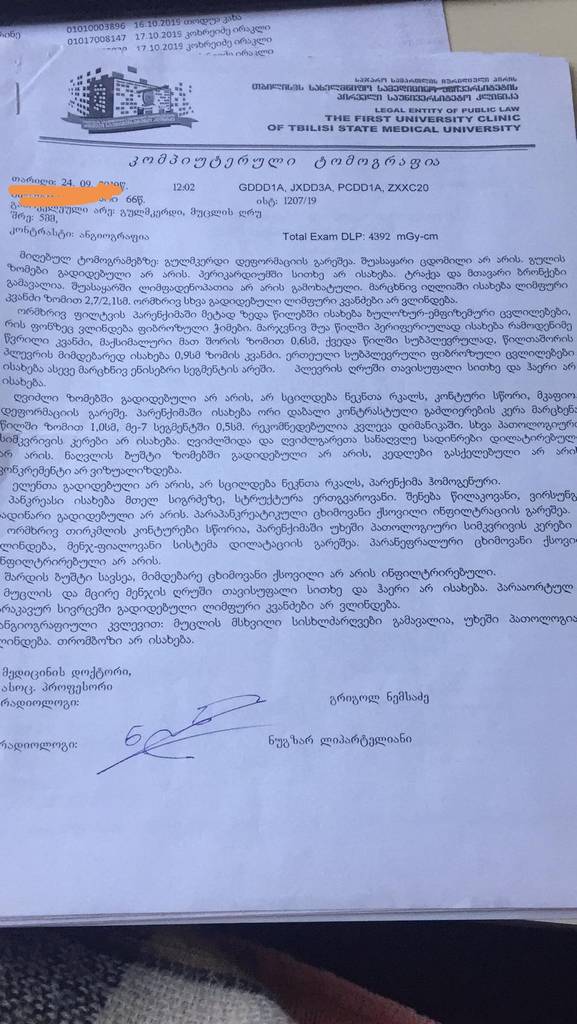 01010003896 16.10.2019 თოდუა კახა
01017008147 17.10.2019 კოხრეიძე ირაკლი
17.10.2019 კოხრეიძე ირაკლი
საჯარო სამართლის იურიდიული პირის
თბილისის სახელმწიფო სამედიცინო უნივერსიტეტის
პირველი საუნივერსიტეტო კლინიკა
LEGAL ENTITY OF PUBLIC LAW
THE FIRST UNIVERSITY CLINIC
OF TBILISI STATE MEDICAL UNIVERSITY
კომპიუტერული ტომოგრაფია
თარიღი: 24. 09. 12:02 GDDD1A, JXDD3A, PCDD1A, ZXXC20
66წ. ისტ: 1207/19
არე: გულმკერდი, მუცლის ღრუ
შრე: 5მმ,
კონტრასტი: ანგიოგრაფია Total Exam DLP: 4392 mGy-cm
მიღებულ ტომოგრამებზე: გულმკერდი დეფორმაციის გარეშეა. შუასაყარი ცდომილი არ არის. გულის
ზომები გადიდებული არ არის. პერიკარდიუმში სითხე არ ისახება. ტრაქეა და მთავარი ბრონქები
გამავალია. შუასაყარში ლიმფადენოპათია არ არის გამოხატული. მარცხნივ იღლიაში ისახება ლიმფური
კვანძი ზომით 2,7/2,1სმ. ორმხრივ სხვა გადიდებული ლიმფური კვანძები არ ვლინდება.
ორმხრივ ფილტვის პარენქიმაში მეტად ზედა წილებში ისახება ბულოზურ-ემფიზემური ცვლილებები,
რის ფონზეც ვლინდება ფიბროზული ჭიმები. მარჯვნივ შუა წილში პერიფერიულად ისახება რამოდენიმე
წვრილი კვანძი, მაქსიმალური მათ შორის ზომით 0,6სმ, ქვედა წილში სუბპლევრულად, წილთაშორის
პლევრის მიმდებარედ ისახება 0,9სმ ზომის კვანძი. ერთეული სუბპლევრული ფიბროზული ცვლილებები
ისახება ასევე მარცხნივ ენისებრი სეგმენტის არეში. პლევრის ღრუში თავისუფალი სითხე და ჰაერი არ
ისახება.
ღვიძლი ზომებში გადიდებული არ არის, არ სცილდება ნეკნთა რკალს, კონტური სწორი, მკაფიო,
დეფორმაციის გარეშე. პარენქიმაში ისახება ორი დაბალი კონტრასტული გაძლიერების კერა მარცხენა
წილში ზომით 1,0სმ, მე-7 სეგმენტში 0,5სმ. რეკომენდებულია კვლევა დინამიკაში. სხვა პათოლოგიური
სიმკვრივის კერები არ ისახება. ღვიძლშიდა და ღვიძლგარეთა სანაღვლე სადინრები დილატირებულ
არ არის. ნაღვლის ბუშტი ზომებში გადიდებული არ არის, კედლები გასქელებული არ არი
კონკრემენტი არ ვიზუალიზდება.
ელენთა გადიდებული არ არის, არ სცილდება ნეკნთა რკალს, პარენქიმა ჰომოგენური.
პანკრეასი ისახება მთელ სიგრძეზე, სტრუქტურა ერთგვაროვანი. შენება წილაკოვანი, ვირსუნგ
ადინარი გადიდებული არ არის. პარაპანკრეატიკული ცხიმოვანი ქსოვილი ინფილტრაციის გარეშეა.
ორმხრივ თირკმლის კონტურები სწორია, პარენქიმაში უხეში პათოლოგიური სიმკვრივის კერები
ლინდება, მენჯ-ფიალოვანი სისტემა დილატაციის გარეშეა. პარანეფრალური ცხიმოვანი ქსოვი
ნფილტრირებული არ არის.
შარდის ბუშტი სავსეა, მიმდებარე ცხიმოვანი ქსოვილი არ არის ინფილტრირებული.
მუცლის და მცირე მენჯის ღრუში თავისუფალი სითხე და ჰაერი არ ისახება. პარააორტულ
არაკავურ სივრცეში გადიდებული ლიმფური კვანძები არ ვლინდება.
ანგიოგრაფიული კვლევით: მუცლის მსხვილი სისხლძარღვები გამავალია, უხეში პათოლოგია
ლინდება. თრომბოზი არ ისახება.
მედიცინის დოქტორი,
ასოც. პროფესორი
რადიოლოგი: გრიგოლ ნემსაძე
რადიოლოგი: ნუგზარ ლიპარტელიანი